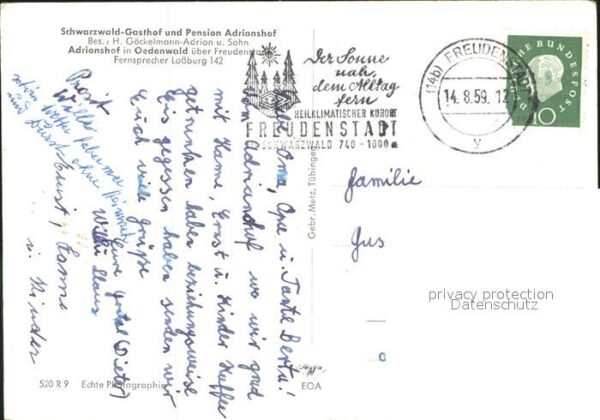 Schwarzwald-Gasthof und Pension Adrianshof
Bes.: H. Göckelmann-Adrion u. Sohn
Adrianshof in Oedenwald über Freudenstadt
Fernsprecher Loßburg 142
Der Sonne
nah,
dem Alltag
fern
HEILKLIMATISCHER KURORT
FREUDENSTADT
SCHWARZWALD 740 - 1000 m
(14b) FREUDENSTADT
14.8.59. 12
y
DEUTSCHE BUNDESPOST
10
Oma, Opa u. Tante Berta!
Vom Adrianshof wo wir grad
mit Hanne, Ernst u. Kinder Kaffee
getrunken haben beziehungsweise
Eis gegessen haben senden wir
Euch viele Grüße
Eure Gretel (Dieter)
Willi Klaus
Ernst, Hanne
u. Kinder
Prost
Willi
Familie
Jus
Gebr. Metz, Tübingen
privacy protection
Datenschutz
520 R 9 Echte Photographie
EOA